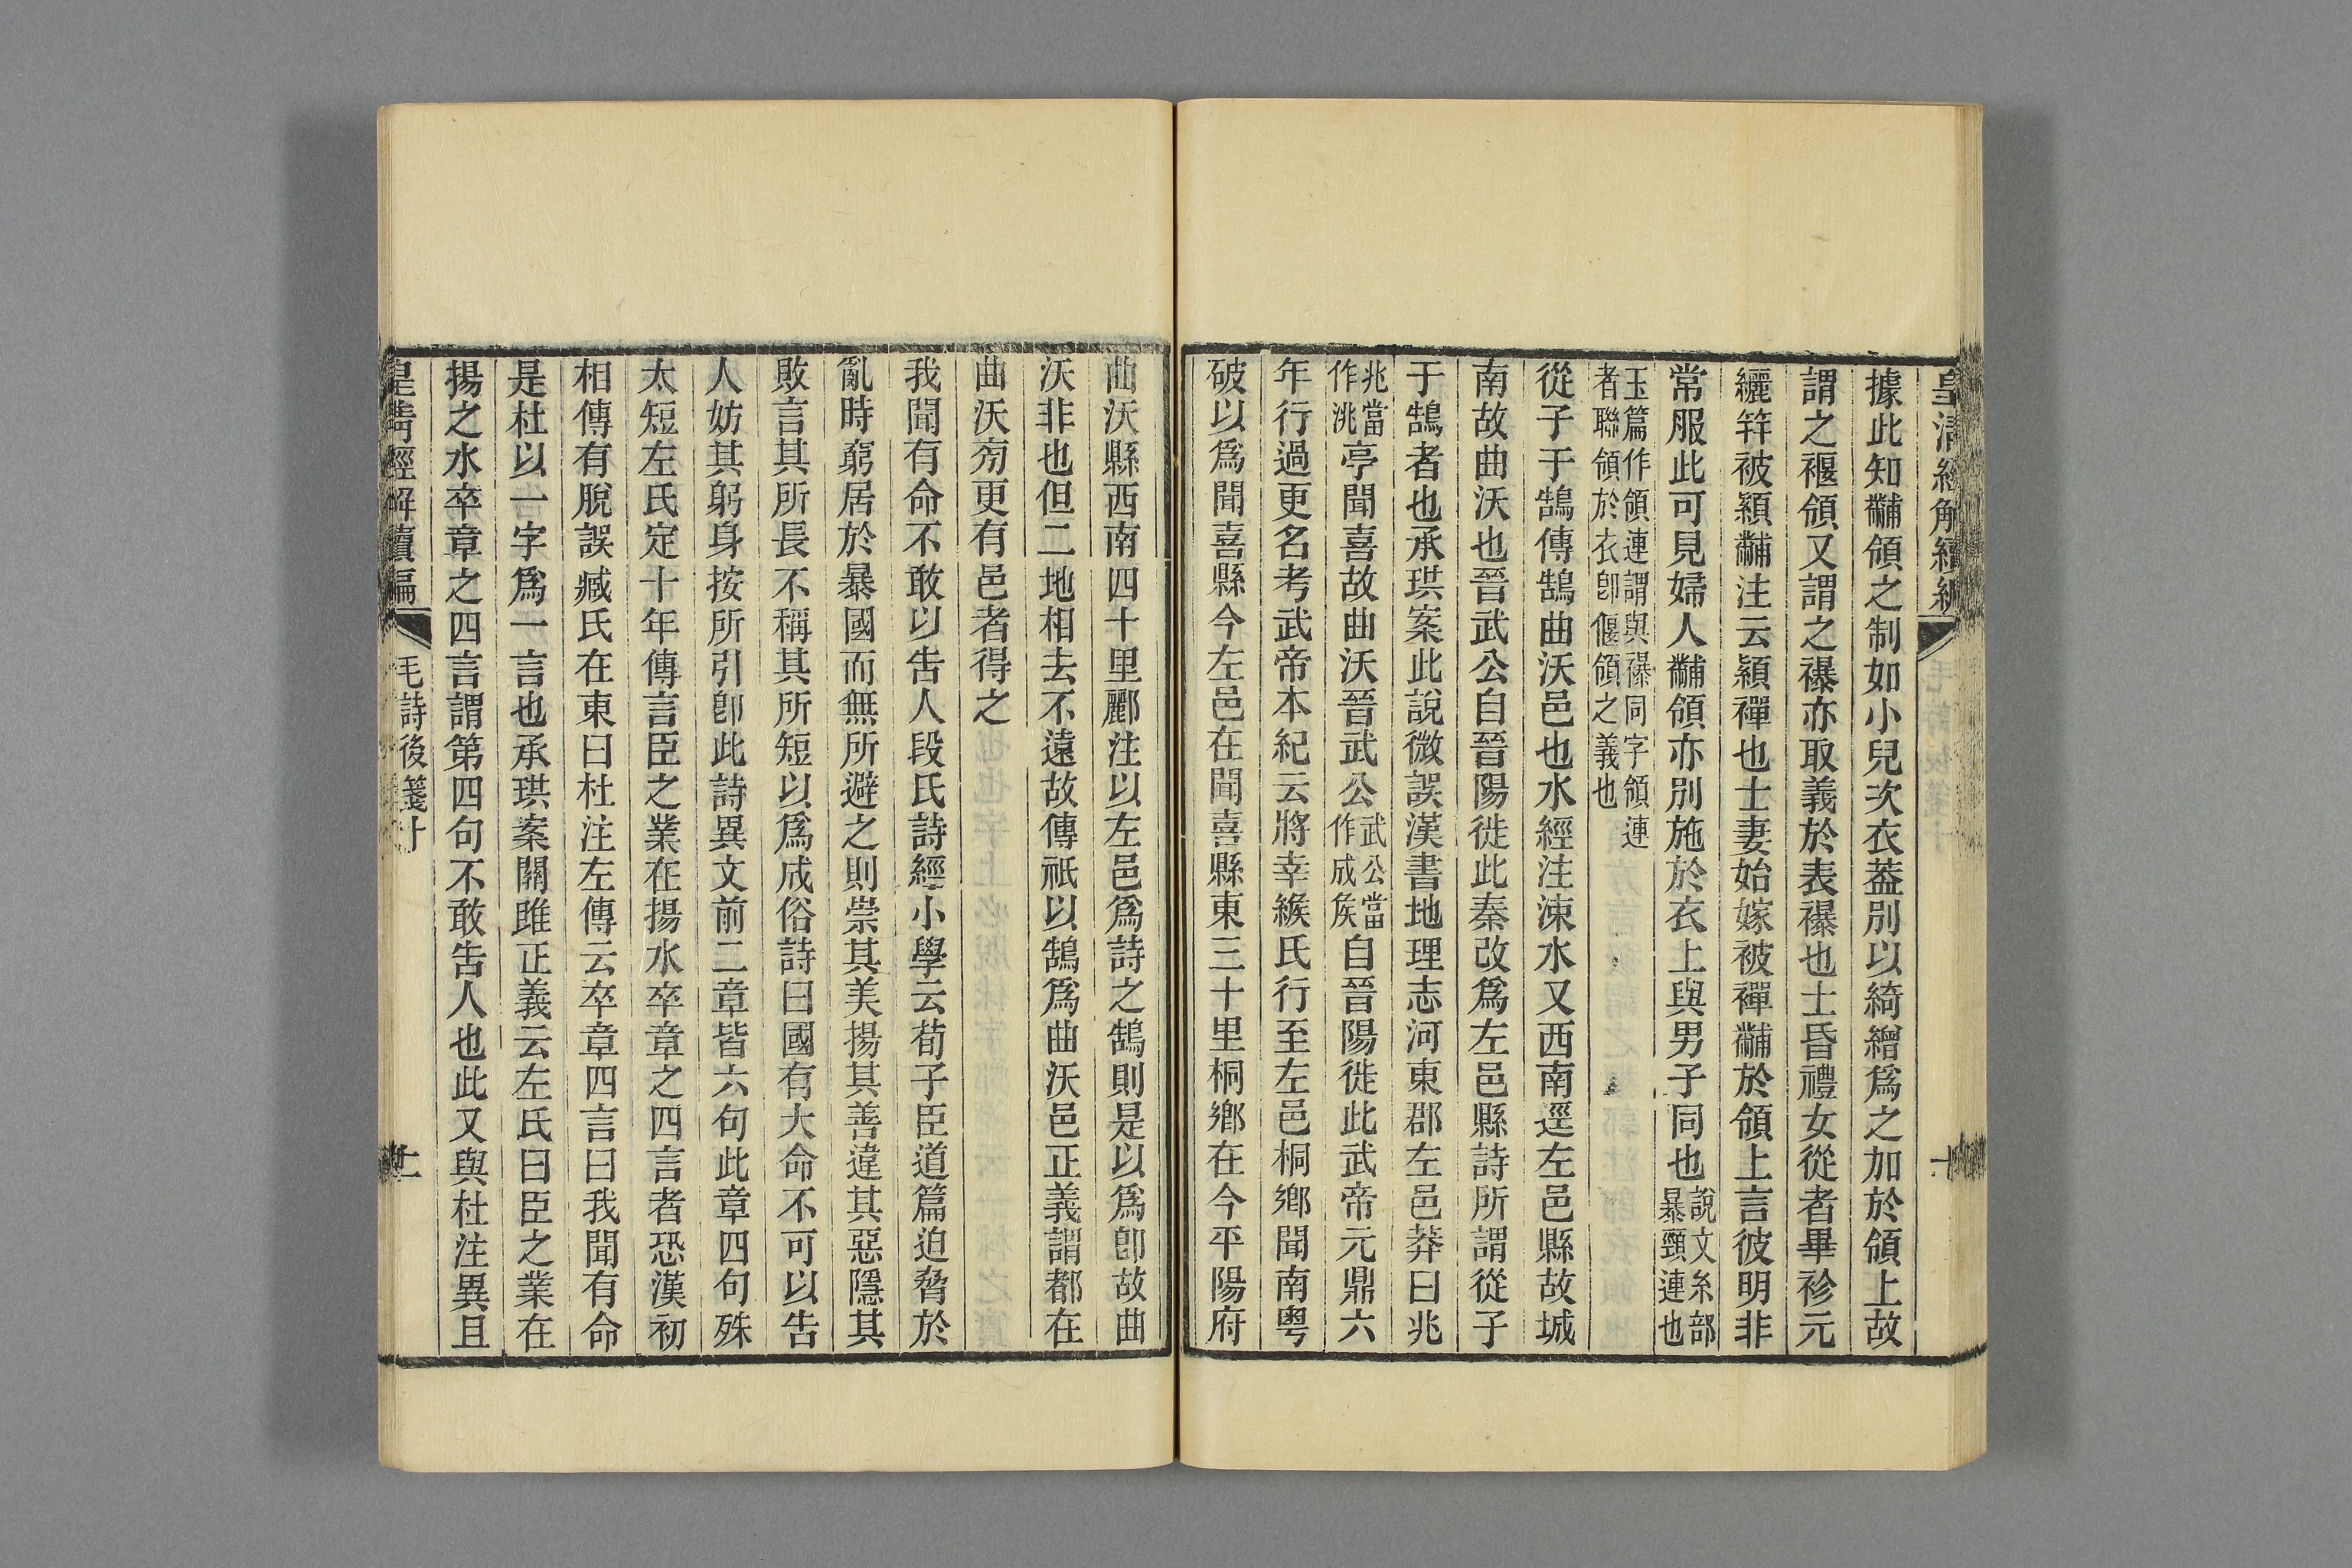 皇清經解續編
據此知黼領之制如小兒次衣葢別以綺繒爲之加於領上故
謂之褗領又謂之襮亦取義於表襮也士昏禮女從者畢袗元
纚笄被潁黼注云潁襌也士妻始嫁被襌黼於領上言彼明非
常服此可見婦人黼領亦別施於衣上與男子同也說文糸部暴頸連也
玉篇作領連謂與襮同字領連者聯領於衣卽偃領之義也
從子于鵠傳鵠曲沃邑也水經注涑水又西南逕左邑縣故城
南故曲沃也晉武公自晉陽徙此秦改爲左邑縣詩所謂從子
于鵠者也承珙案此說微誤漢書地理志河東郡左邑莽曰兆
兆當作洮亭聞喜故曲沃晉武公武公當作成矦自晉陽徙此武帝元鼎六
年行過更名考武帝本紀云將幸緱氏行至左邑桐鄉聞南粵
破以爲聞喜縣今左邑在聞喜縣東三十里桐鄉在今平陽府
曲沃縣西南四十里酈注以左邑爲詩之鵠則是以爲卽故曲
沃非也但二地相去不遠故傳祇以鵠爲曲沃邑正義謂都在
曲沃旁更有邑者得之
我聞有命不敢以告人段氏詩經小學云荀子臣道篇迫脅於
亂時窮居於暴國而無所避之則崇其美揚其善違其惡隱其
敗言其所長不稱其所短以爲成俗詩曰國有大命不可以告
人妨其躬身按所引卽此詩異文前二章皆六句此章四句殊
太短左氏定十年傳言臣之業在揚水卒章之四言者恐漢初
相傳有脫誤臧氏在東曰杜注左傳云卒章四言曰我聞有命
是杜以一字爲一言也承珙案關雎正義云左氏曰臣之業在
揚之水卒章之四言謂第四句不敢告人也此又與杜注異且
皇清經解續編
毛詩後箋十